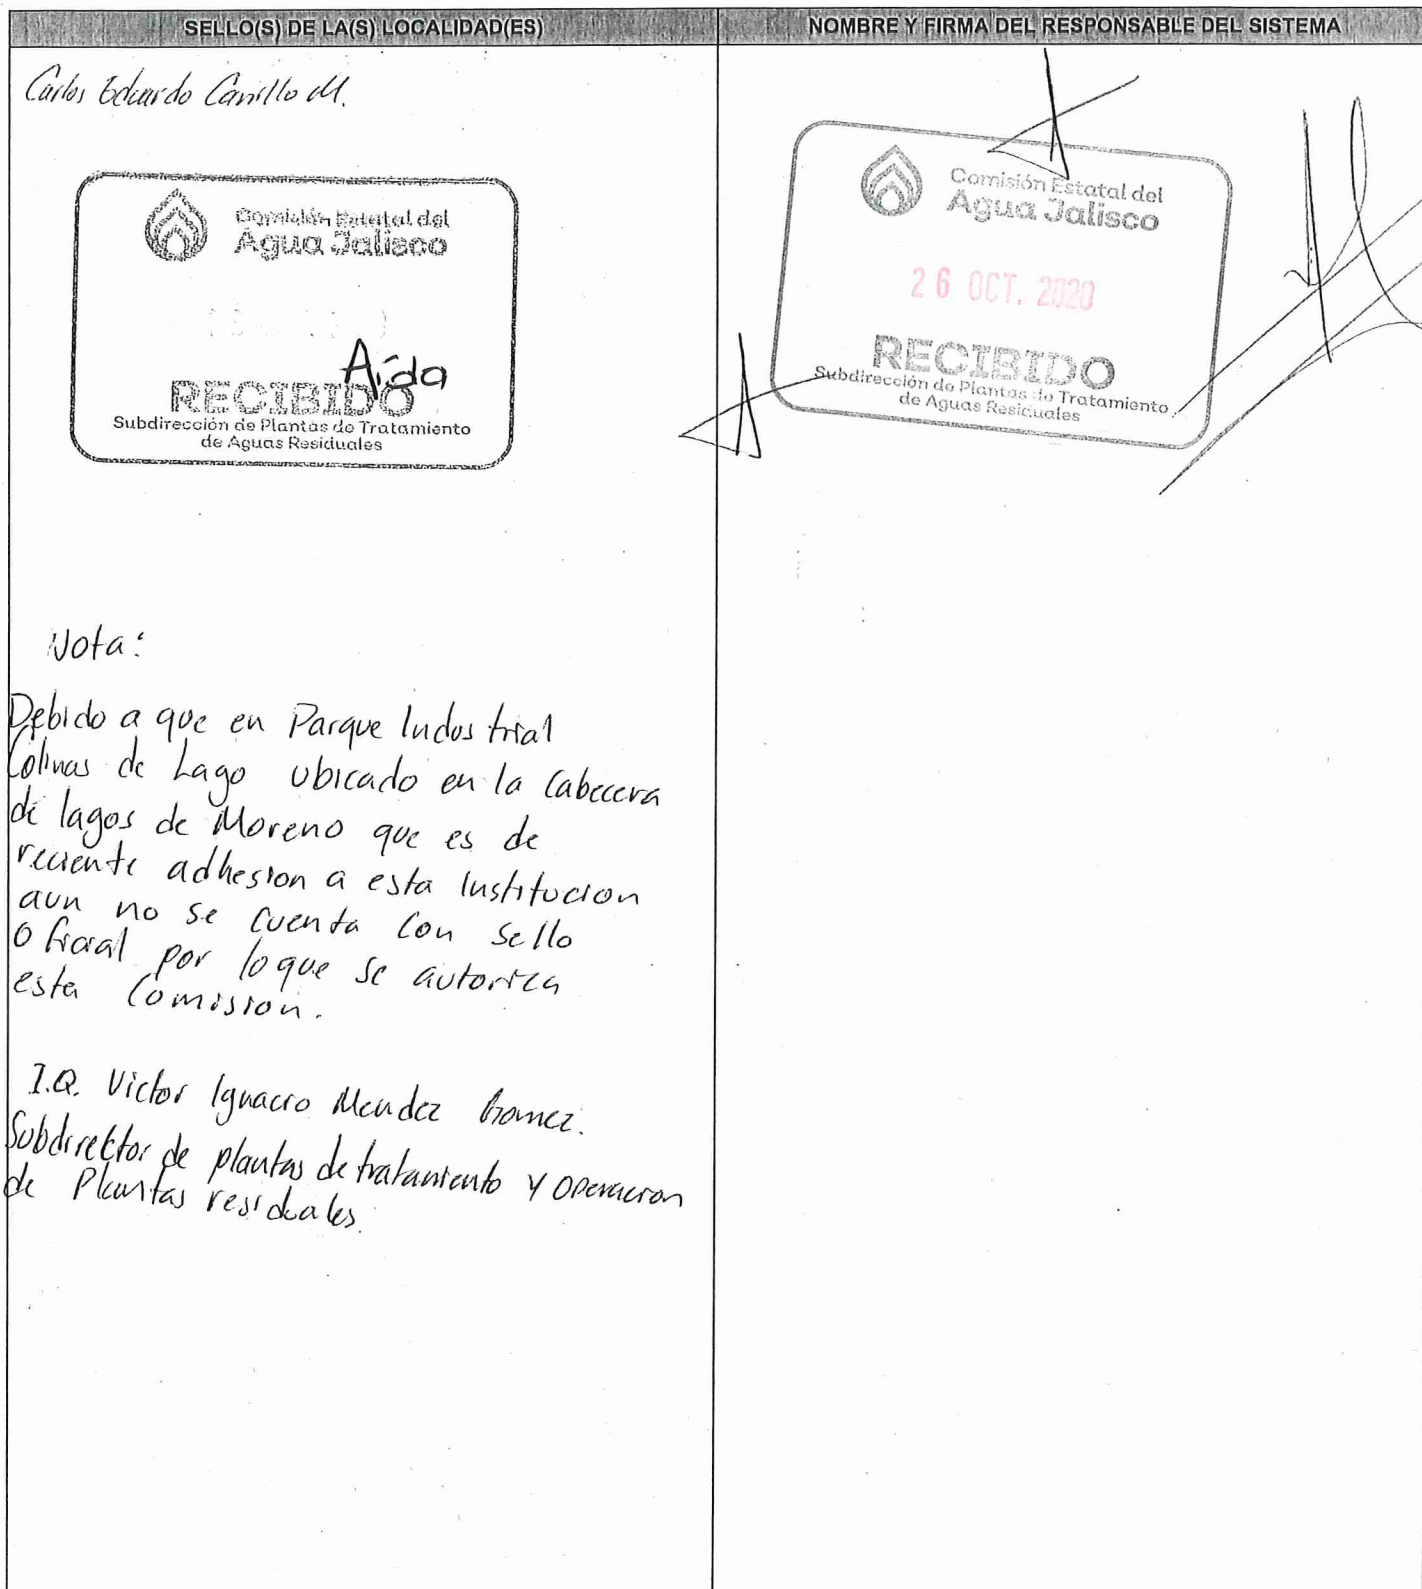 SELLO(S) DE LA(S) LOCALIDAD(ES)
Carlos Eduardo Carrillo M.
Comisión Estatal del
Agua Jalisco
Aída
RECIBIDO
Subdirección de Plantas de Tratamiento
de Aguas Residuales
Nota:
Debido a que en Parque Industrial
Colinas de Lago ubicado en la Cabecera
de lagos de Moreno que es de
reciente adhesion a esta Institucion
aun no se cuenta Con Sello
Oficial por lo que se autoriza
esta Comission.
I.Q. Victor Ignacio Mendez Gomez.
Subdirektor de plantas de tratamiento y Operacion
de Plantas residuales.
NOMBRE Y FIRMA DEL RESPONSABLE DEL SISTEMA
Comisión Estatal del
Agua Jalisco
26 OCT. 2020
RECIBIDO
Subdirección de Plantas de Tratamiento
de Aguas Residuales